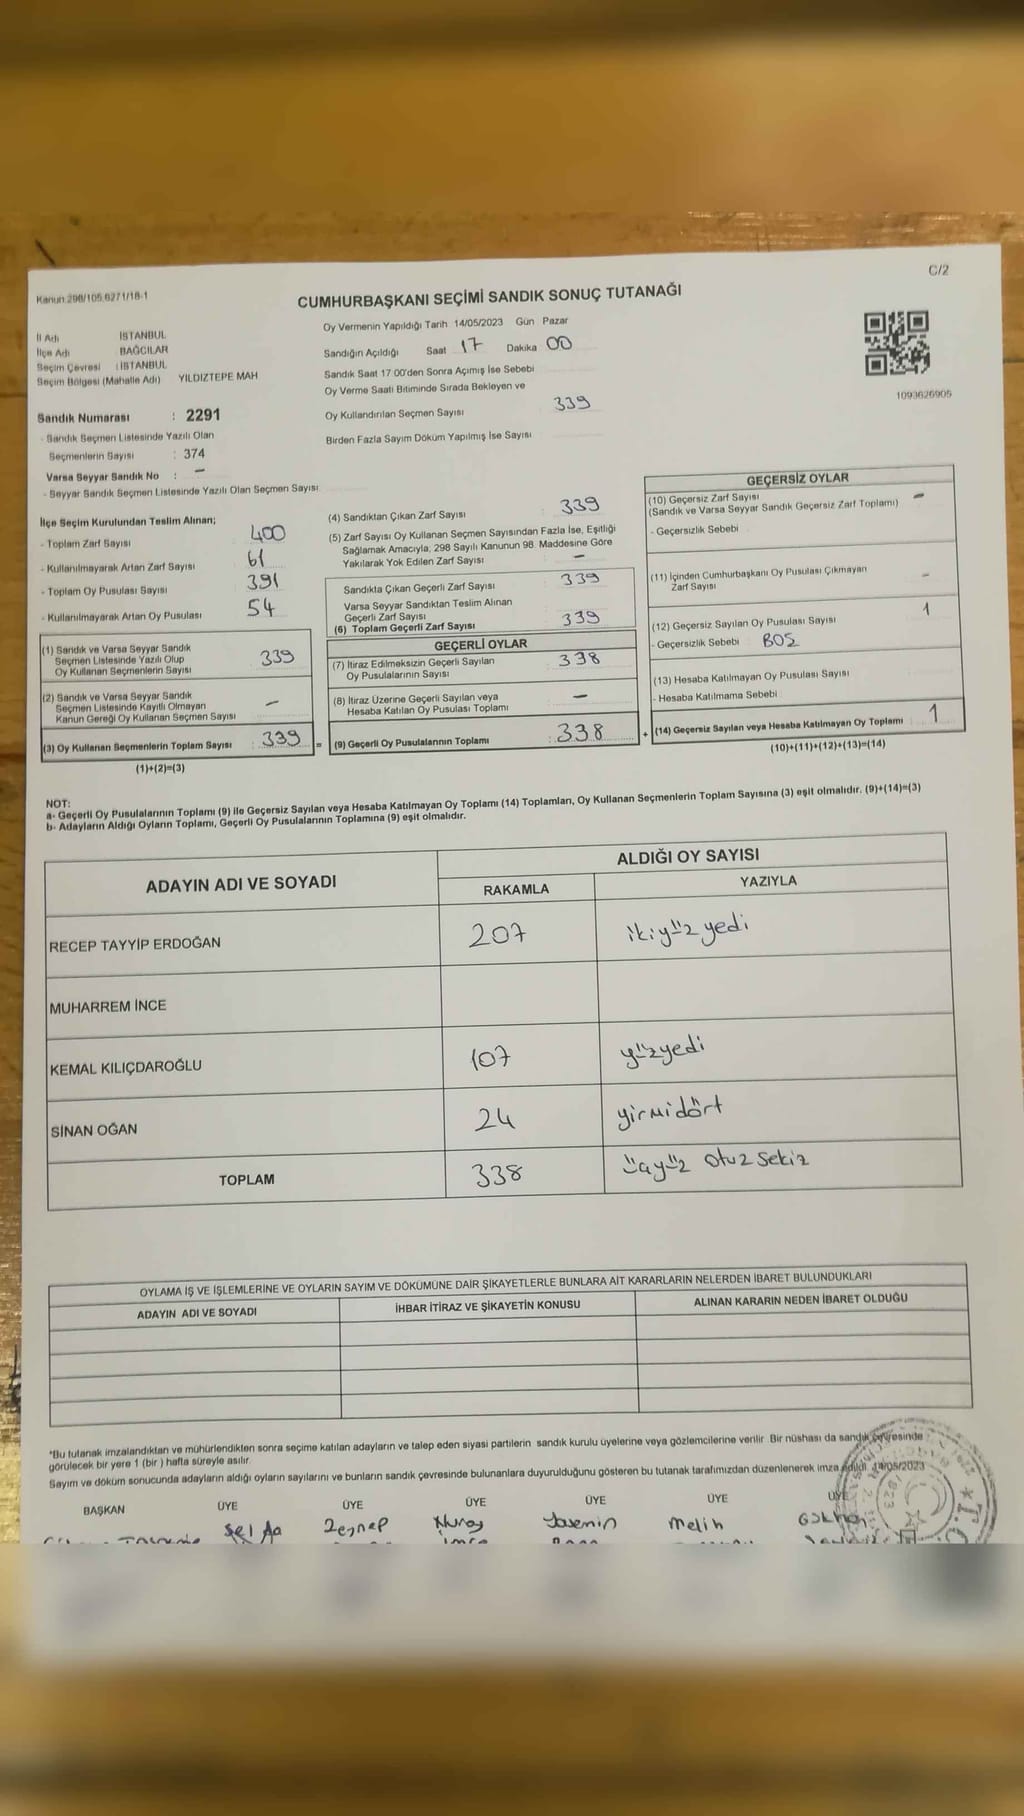 C/2
Kanun:298/105.6271/18-1
CUMHURBAŞKANI SEÇİMİ SANDIK SONUÇ TUTANAĞI
İl Adı İSTANBUL
İlçe Adı BAĞCILAR
Seçim Çevresi : İSTANBUL
Seçim Bölgesi (Mahalle Adı) YILDIZTEPE MAH
Oy Vermenin Yapıldığı Tarih 14/05/2023 Gün Pazar
Sandığın Açıldığı Saat 17 Dakika 00
Sandık Saat 17 00'den Sonra Açımış İse Sebebi
Oy Verme Saati Bitiminde Sırada Bekleyen ve
Oy Kullandırılan Seçmen Sayısı 339
Birden Fazla Sayım Döküm Yapılmış İse Sayısı
1093626905
Sandık Numarası : 2291
- Sandık Seçmen Listesinde Yazılı Olan
Seçmenlerin Sayısı : 374
Varsa Seyyar Sandık No : –
- Seyyar Sandık Seçmen Listesinde Yazılı Olan Seçmen Sayısı
İlçe Seçim Kurulundan Teslim Alınan;
- Toplam Zarf Sayısı 400
- Kullanılmayarak Artan Zarf Sayısı 61
- Toplam Oy Pusulası Sayısı 391
- Kullanılmayarak Artan Oy Pusulası 54
(1) Sandık ve Varsa Seyyar Sandık
Seçmen Listesinde Yazılı Olup
Oy Kullanan Seçmenlerin Sayısı 339
(2) Sandık ve Varsa Seyyar Sandık
Seçmen Listesinde Kayıtlı Olmayan
Kanun Gereği Oy Kullanan Seçmen Sayısı –
(3) Oy Kullanan Seçmenlerin Toplam Sayısı : 339 =
(1)+(2)=(3)
(4) Sandıktan Çıkan Zarf Sayısı 339
(5) Zarf Sayısı Oy Kullanan Seçmen Sayısından Fazla İse, Eşitliği
Sağlamak Amacıyla, 298 Sayılı Kanunun 98. Maddesine Göre
Yakılarak Yok Edilen Zarf Sayısı –
Sandıkta Çıkan Geçerli Zarf Sayısı 339
Varsa Seyyar Sandıktan Teslim Alınan
Geçerli Zarf Sayısı
(6) Toplam Geçerli Zarf Sayısı 339
GEÇERLİ OYLAR
(7) İtiraz Edilmeksizin Geçerli Sayılan
Oy Pusulalarının Sayısı 338
(8) İtiraz Üzerine Geçerli Sayılan veya
Hesaba Katılan Oy Pusulası Toplamı –
(9) Geçerli Oy Pusulalarının Toplamı : 338 +
GEÇERSİZ OYLAR
(10) Geçersiz Zarf Sayısı –
(Sandık ve Varsa Seyyar Sandık Geçersiz Zarf Toplamı)
- Geçersizlik Sebebi
(11) İçinden Cumhurbaşkanı Oy Pusulası Çıkmayan
Zarf Sayısı –
(12) Geçersiz Sayılan Oy Pusulası Sayısı 1
- Geçersizlik Sebebi BOŞ
(13) Hesaba Katılmayan Oy Pusulası Sayısı
- Hesaba Katılmama Sebebi
(14) Geçersiz Sayılan veya Hesaba Katılmayan Oy Toplamı 1
(10)+(11)+(12)+(13)=(14)
NOT:
a- Geçerli Oy Pusulalarının Toplamı (9) ile Geçersiz Sayılan veya Hesaba Katılmayan Oy Toplamı (14) Toplamları, Oy Kullanan Seçmenlerin Toplam Sayısına (3) eşit olmalıdır. (9)+(14)=(3)
b- Adayların Aldığı Oyların Toplamı, Geçerli Oy Pusulalarının Toplamına (9) eşit olmalıdır.
ADAYIN ADI VE SOYADI ALDIĞI OY SAYISI
RAKAMLA YAZIYLA
RECEP TAYYİP ERDOĞAN 207 ikiyüz yedi
MUHARREM İNCE
KEMAL KILIÇDAROĞLU 107 yüzyedi
SİNAN OĞAN 24 yirmidört
TOPLAM 338 üçyüz otuz sekiz
OYLAMA İŞ VE İŞLEMLERİNE VE OYLARIN SAYIM VE DÖKÜMÜNE DAİR ŞİKAYETLERLE BUNLARA AİT KARARLARIN NELERDEN İBARET BULUNDUKLARI
ADAYIN ADI VE SOYADI İHBAR İTİRAZ VE ŞİKAYETİN KONUSU ALINAN KARARIN NEDEN İBARET OLDUĞU
*Bu tutanak imzalandıktan ve mühürlendikten sonra seçime katılan adayların ve talep eden siyasi partilerin sandık kurulu üyelerine veya gözlemcilerine verilir. Bir nüshası da sandık çevresinde
görülecek bir yere 1 (bir ) hafta süreyle asılır.
Sayım ve döküm sonucunda adayların aldığı oyların sayılarını ve bunların sandık çevresinde bulunanlara duyurulduğunu gösteren bu tutanak tarafımızdan düzenlenerek imza edildi. 14/05/2023
BAŞKAN ÜYE ÜYE ÜYE ÜYE ÜYE ÜYE
Zeynep Nuray Yasemin Melih Gökhan
T.C.